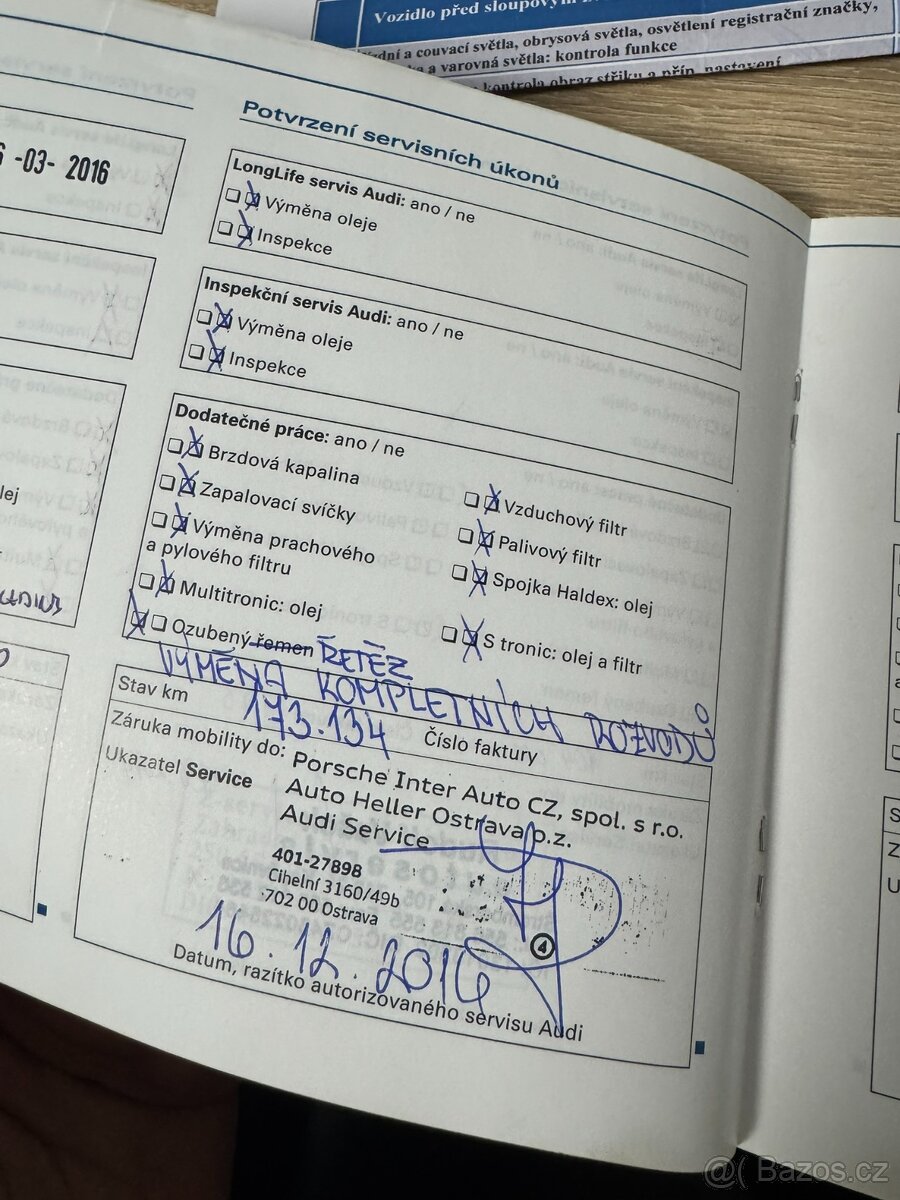 Vozidlo před sloupovým
a couvací světla, obrysová světla, osvětlení registrační značky,
a varovná světla: kontrola funkce
kontrola obraz střiku a příp. nastavení
-03- 2016
olej
Potvrzení servisních úkonů
LongLife servis Audi: ano / ne
Výměna oleje
Inspekce
Inspekční servis Audi: ano / ne
Výměna oleje
Inspekce
Dodatečné práce: ano / ne
Brzdová kapalina
Zapalovací svíčky
Výměna prachového
a pylového filtru
Multitronic: olej
Ozubený řemen ŘETĚZ
Vzduchový filtr
Palivový filtr
Spojka Haldex: olej
S tronic: olej a filtr
VÝMĚNA KOMPLETNÍCH ROZVODŮ
Stav km 173.134 Číslo faktury
Záruka mobility do:
Ukazatel Service
Porsche Inter Auto CZ, spol. s r.o.
Auto Heller Ostrava o.z.
Audi Service
401-27898
Cihelní 3160/49b
702 00 Ostrava
4
16.12.2016
Datum, razítko autorizovaného servisu Audi
@ Bazos.cz